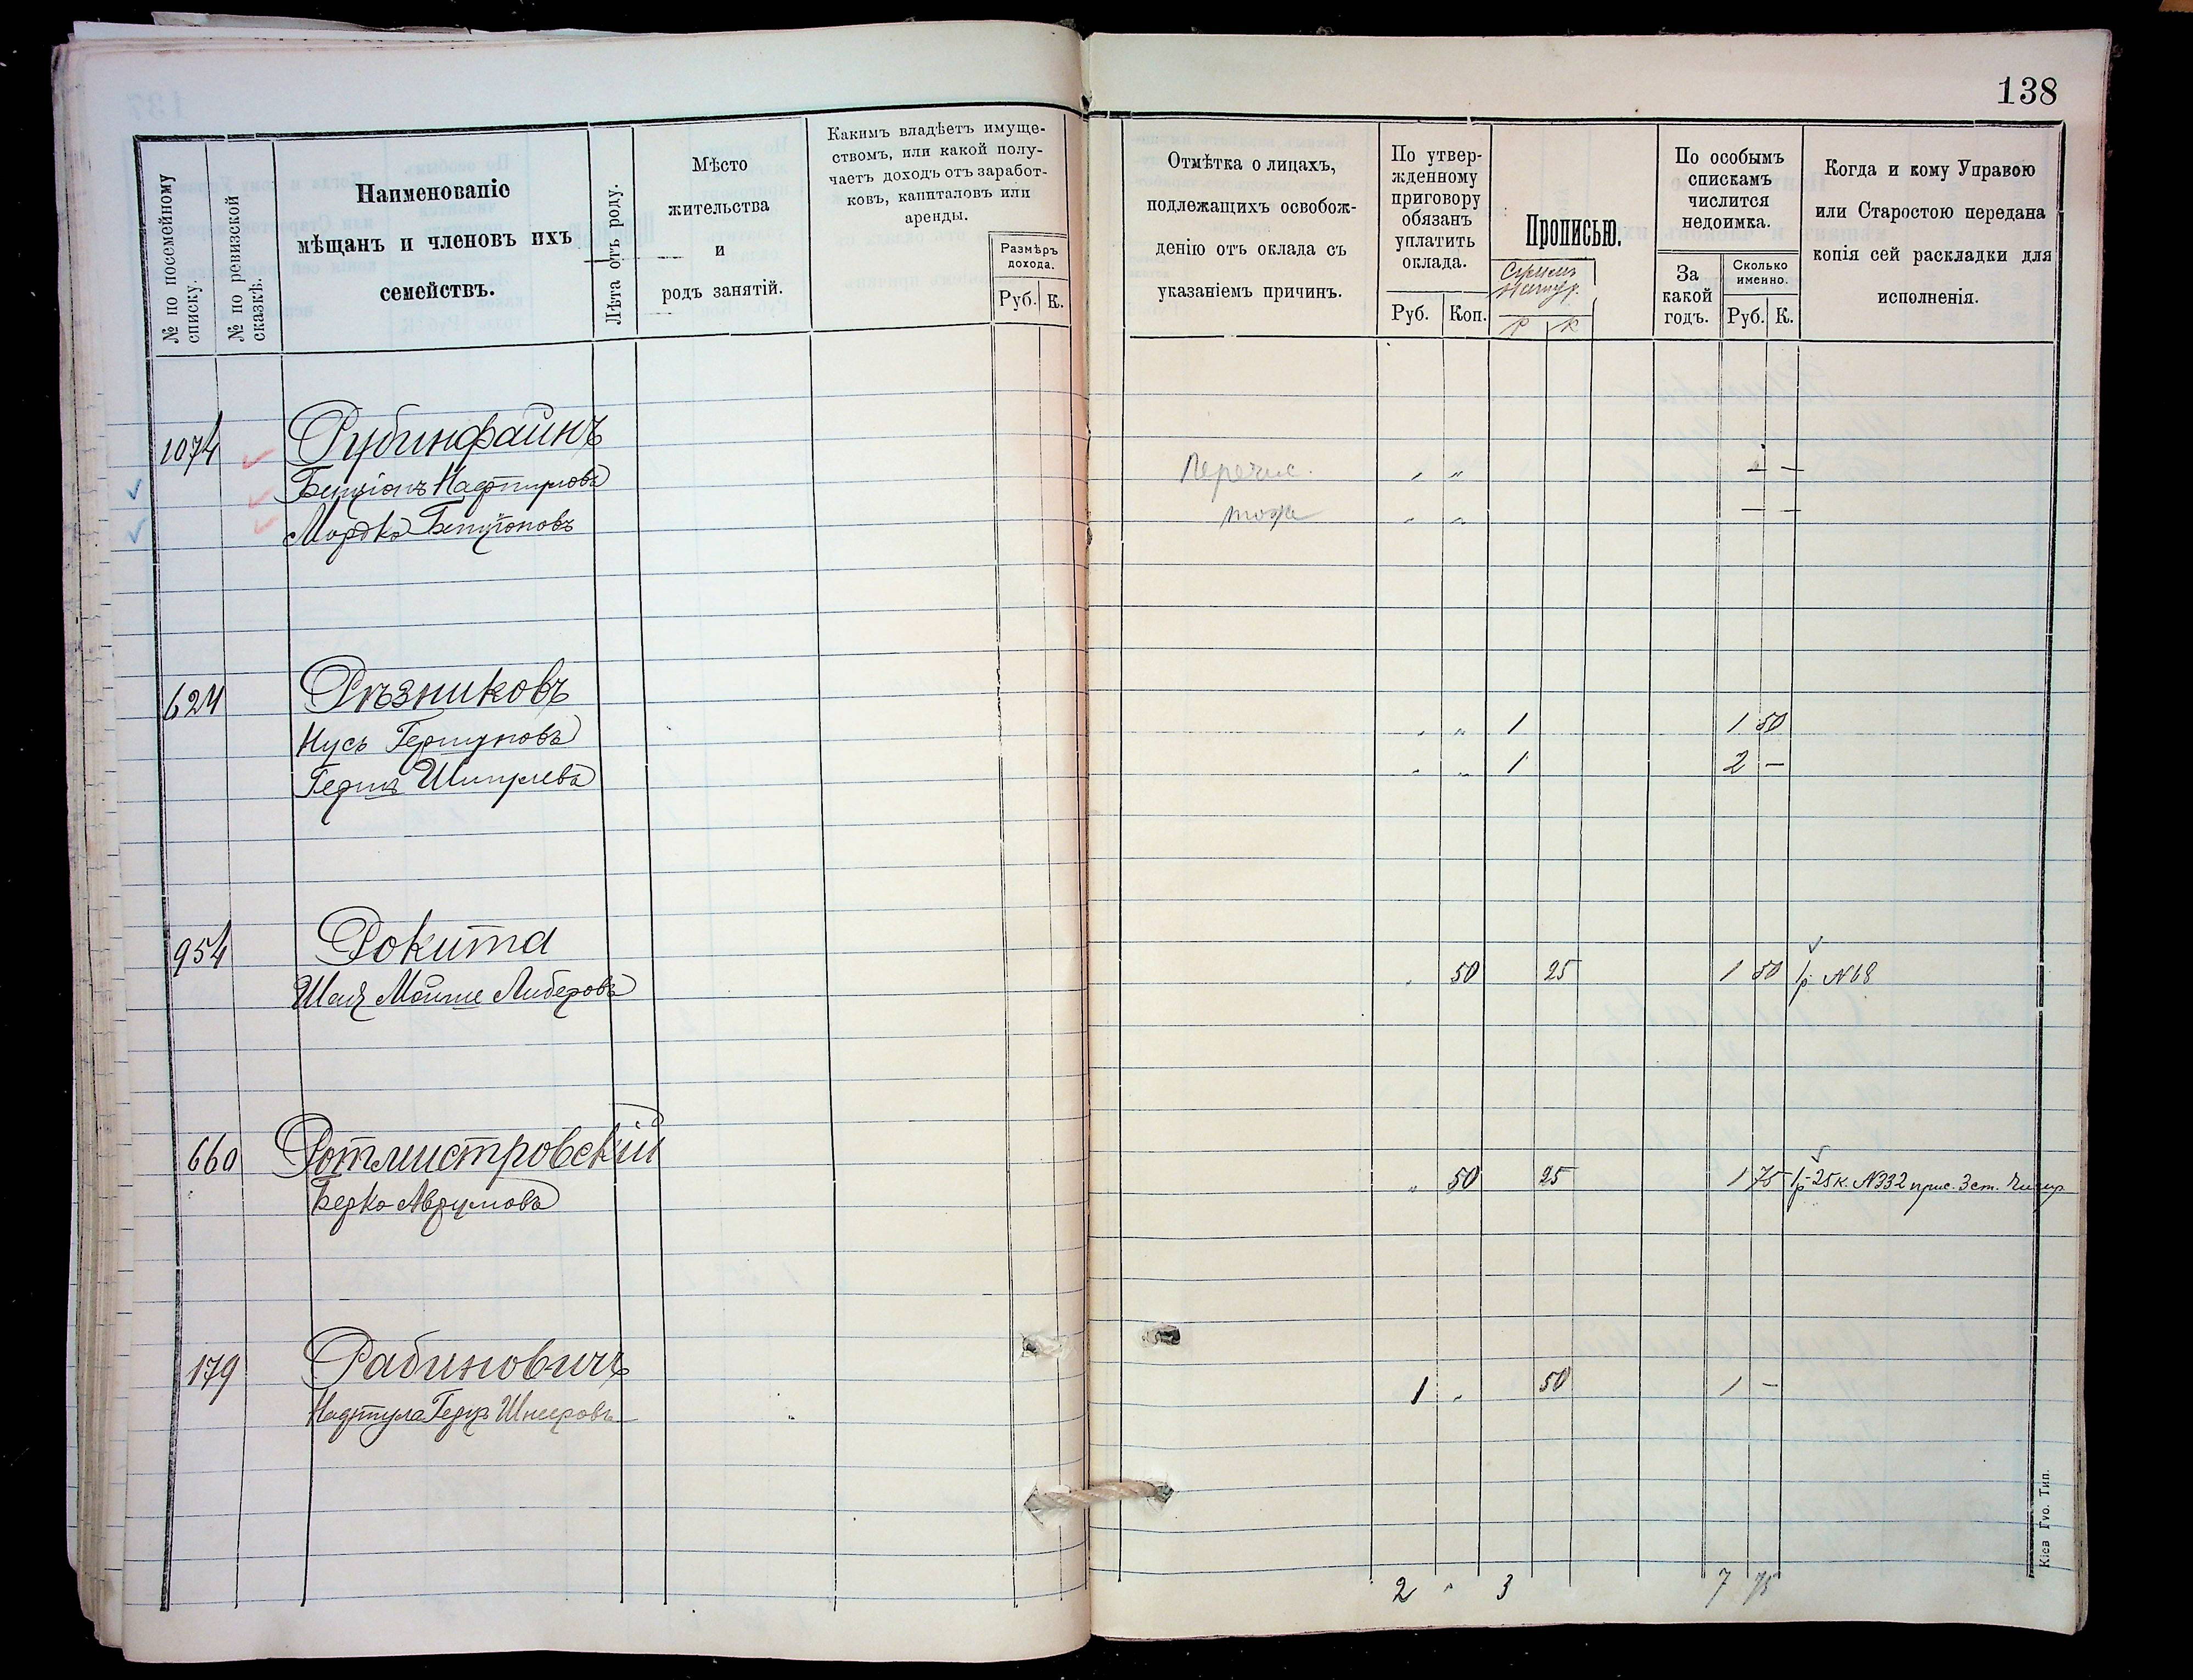 138
№ по посемейному списку.
№ по ревизской сказкѣ.
Наименованіе
мѣщанъ и членовъ ихъ
семействъ.
Лѣта отъ роду.
Мѣсто
жительства
и
родъ занятій.
Какимъ владѣетъ имуще-
ствомъ, или какой полу-
чаетъ доходъ отъ заработ-
ковъ, капиталовъ или
аренды.
Размѣръ
дохода.
Руб. К.
Отмѣтка о лицахъ,
подлежащихъ освобож-
денію отъ оклада съ
указаніемъ причинъ.
По утвер-
жденному
приговору
обязанъ
уплатить
оклада.
Руб. Коп.
Прописью.
Р К
По особымъ
спискамъ
числится
недоимка.
За
какой
годъ.
Сколько
именно.
Руб. К.
Когда и кому Управою
или Старостою передана
копія сей раскладки для
исполненія.
1074 Рубинфайнъ
Бенціонъ Нафтуловъ Перечис. " " " —
Мордко Бенціоновъ тоже " " — —
624 Рѣзниковъ
Нусь Гершуновъ " " 1 1 50
Гершъ Шмулевъ " " 1 2 —
954 Рокита
Шая Мойше Либеровъ " 50 25 1 50 1р №68
660 Ротмистровскій
Берко Аврумовъ " 50 25 1 75 1р 25к. №332 прис. 3 ст. Чигир
179 Рабиновичъ
Нафтула Герцъ Шнееровъ 1 " 50 1 —
2 " 3 7 75
Кіев Губ. Тип.